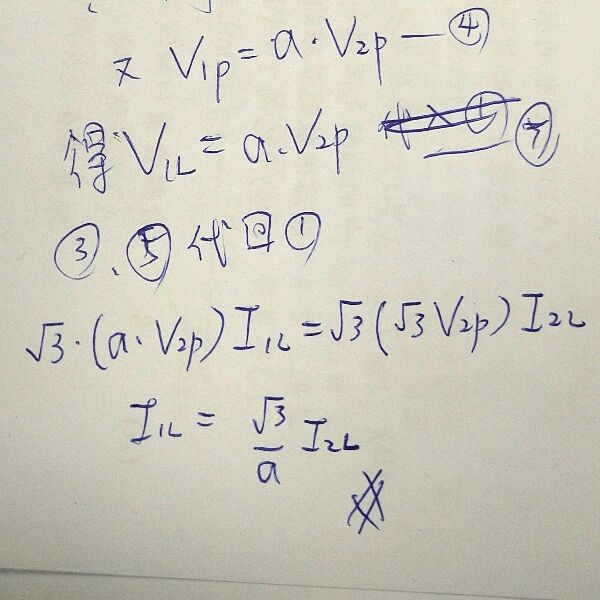 又 V1p = a · V2p — ④
得 V1L = a · V2p ⑤
③、⑤ 代回 ①
√3 · (a · V2p) I1L = √3 (√3 V2p) I2L
I1L = √3/a I2L